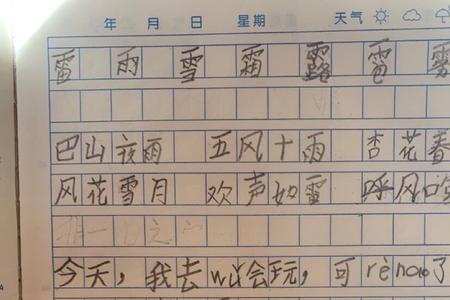 年 月 日 星期 天气
雷 雨 雪 霜 露 雹 雾
巴山夜雨 五风十雨 杏花春
风花雪月 欢声如雷 呼风唤
一日之
今天，我去 会玩，可rènao了